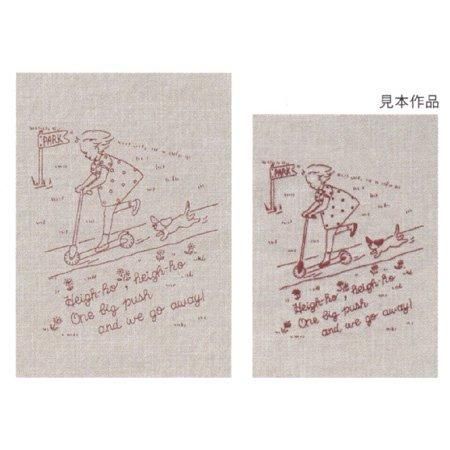 見本作品
PARK
Heigh-ho, heigh-ho
One big push
and we go away!
PARK
Heigh-ho, heigh-ho
One big push
and we go away!